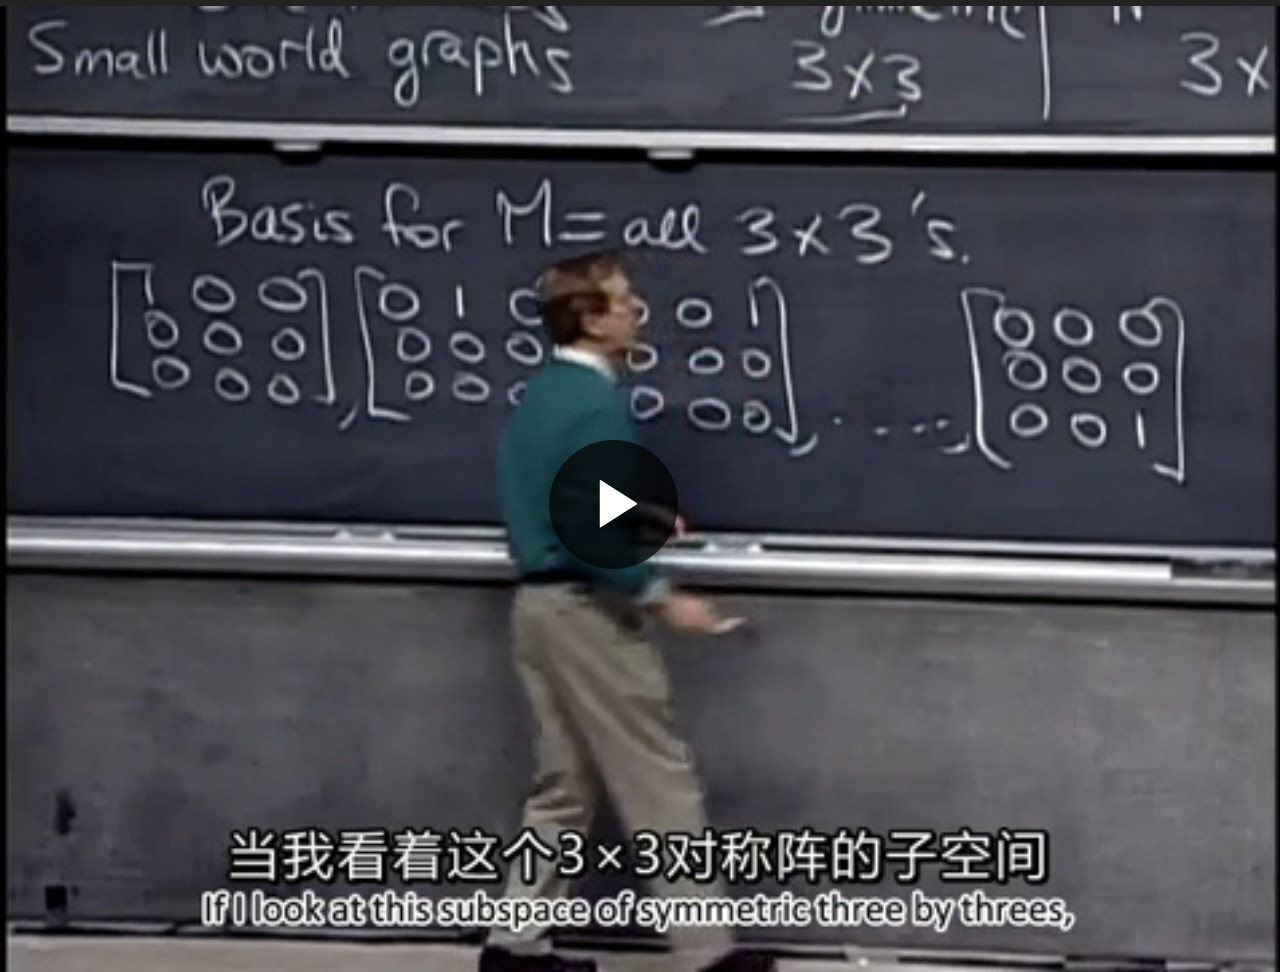 Small world graphs
3×3
3×
Basis for M = all 3×3's.
[1 0 0 [0 1 0 0 1 [0 0 0
0 0 0] 0 0 0 0 0 0 0 0
0 0 0], 0 0 0 0 0], ....., 0 0 1]
当我看着这个3×3对称阵的子空间
If I look at this subspace of symmetric three by threes,